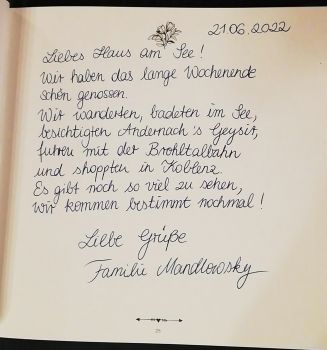 21.06.2022
Liebes Haus am See!
Wir haben das lange Wochenende
schön genossen.
Wir wanderten, badeten im See,
besichtigten Andernach's Geysir,
fuhren mit der Brohltalbahn
und shoppten in Koblenz.
Es gibt noch so viel zu sehen,
wir kommen bestimmt nochmal!
Liebe Grüße
Familie Mandlowsky